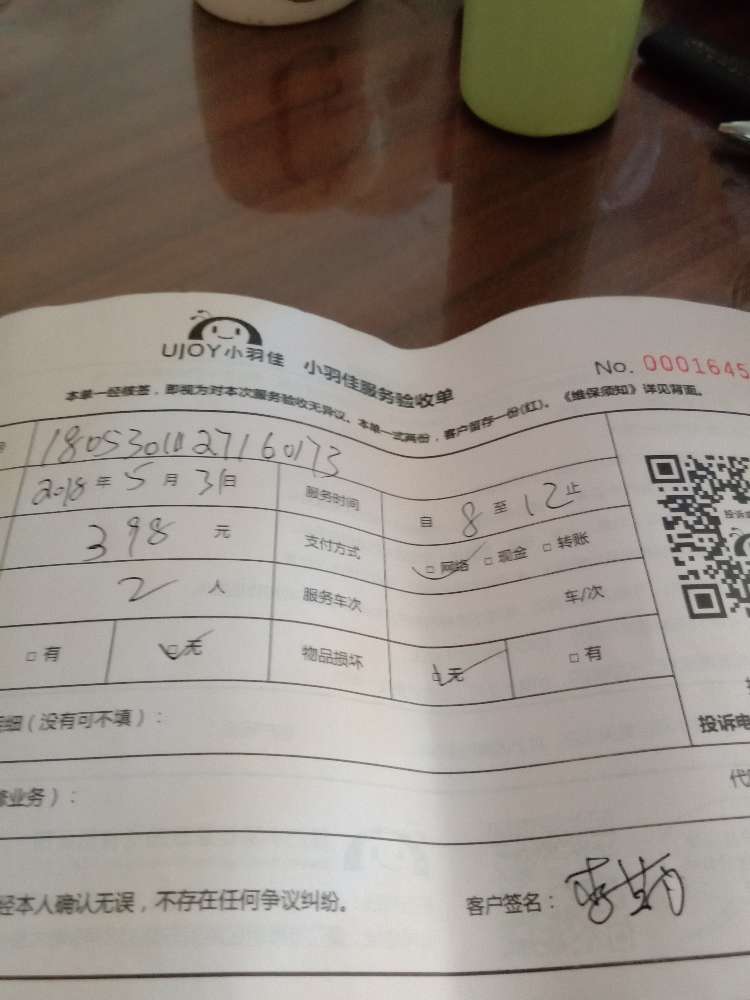 UJOY小羽佳 小羽佳服务验收单 No. 0001645
本单一经核签，即视为对本次服务验收无异议。本单一式两份，客户留存一份(红)。《维保须知》详见背面。
号 1805301027160173
2018年5月31日 服务时间 自 8 至 12 止
398 元 支付方式 □网络 □现金 □转账
2 人 服务车次 车/次
□有 □无 物品损坏 □无 □有
投诉电
细（没有可不填）：
修业务）： 代
经本人确认无误，不存在任何争议纠纷。 客户签名：